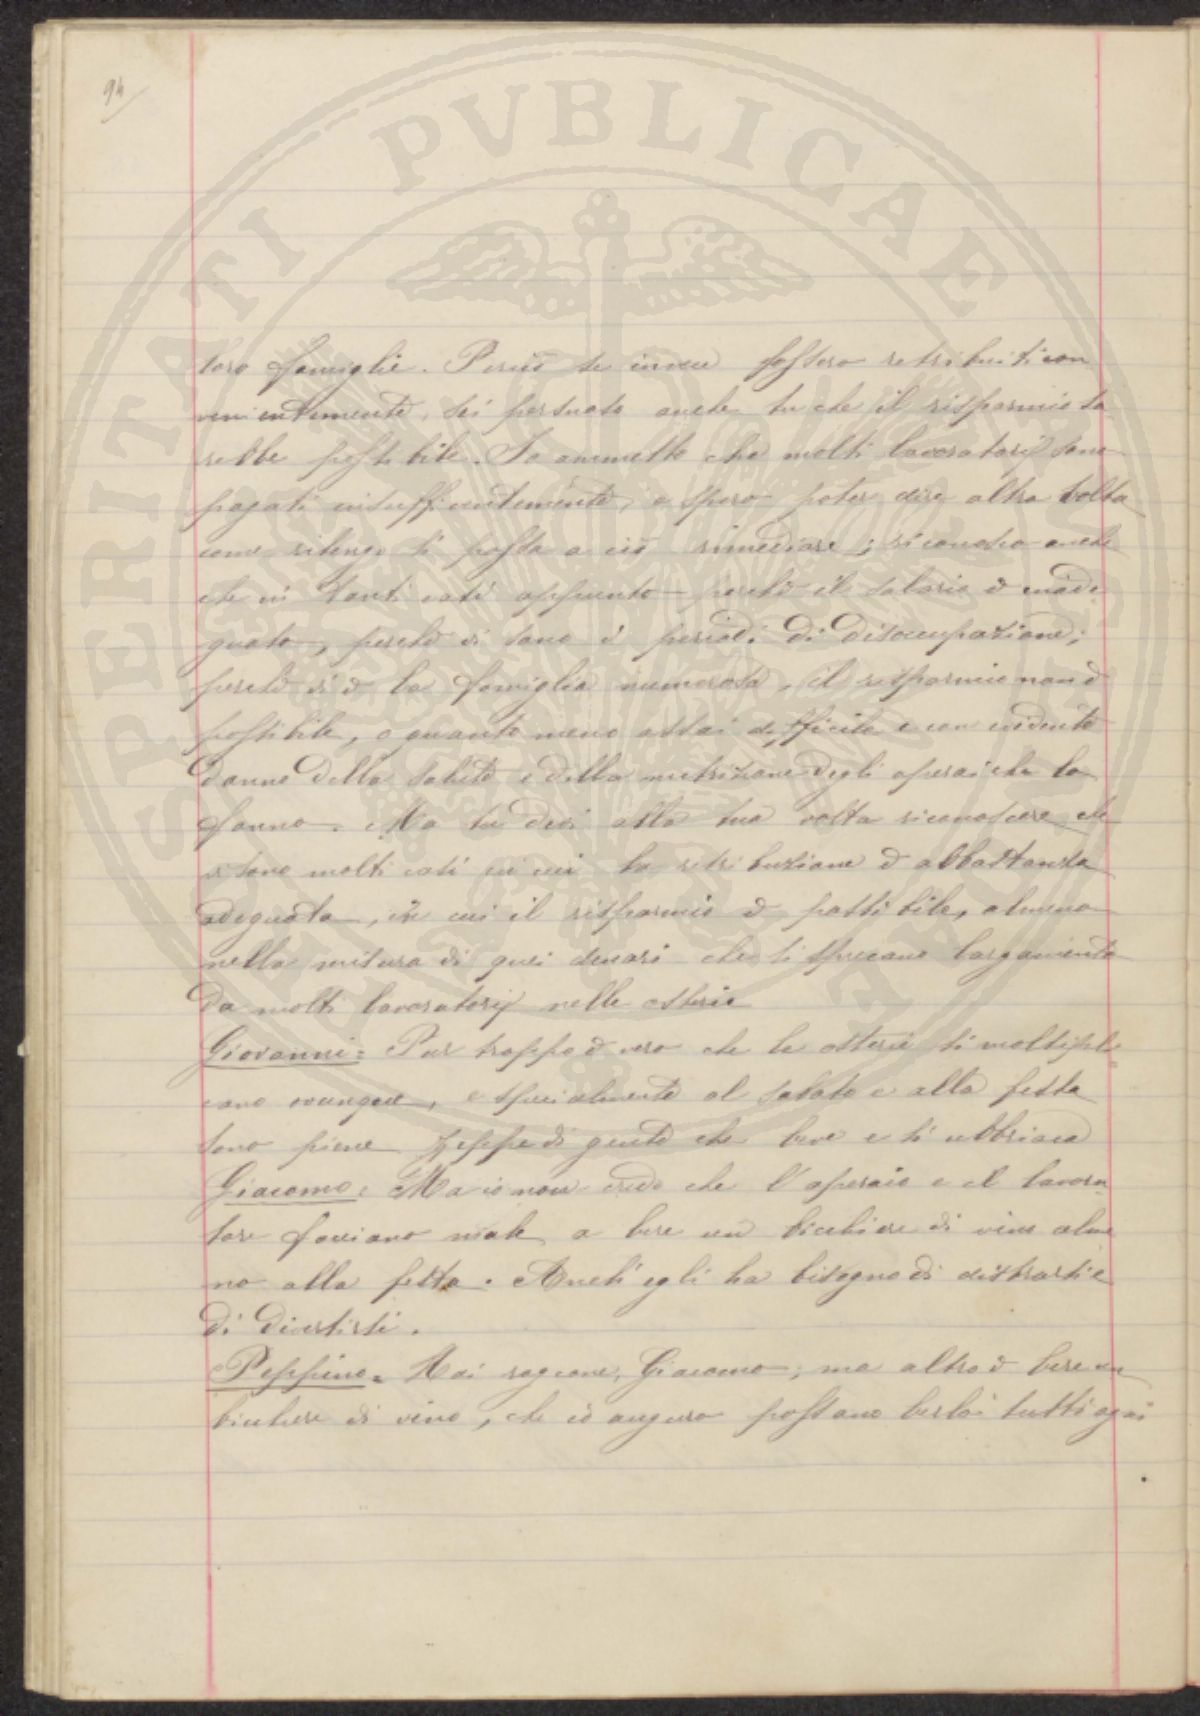 94
loro famiglie. Perciò se invece fossero retribuiti con
venientemente, sei persuato anche tu che il risparmio sa
rebbe possibile. Io ammetto che molti lavoratorij sono
pagati insufficientemente, e spero poter dire altra volta
come ritengo si possa a ciò rimediare; riconosco anche
che in tanti casi appunto perchè il salario è inade
guato, perchè vi sono i periodi di disoccupazione;
perchè vi è la famiglia numerosa, il risparmio non è
possibile, o quanto meno assai difficile e con evidente
danno della salute e della nutrizione degli operai che lo
fanno. Ma tu devi alla tua volta riconoscere che
vi sono molti casi in cui la retribuzione è abbastanza
adeguata, in cui il risparmio è possibile, almeno
nella misura di quei denari che si sprecano largamente
da molti lavoratorij nelle osterie
Giovanni = Pur troppo è vero che le osterie si moltipli=
cano ovunque, e specialmente al sabato e alla festa
sono piene zeppe di gente che beve e si ubbriaca
Giacomo = Ma io non credo che l'operaio e il lavora
tore facciano male a bere un bicchiere di vino alme
no alla festa. Anch'egli ha bisogno di distrarsi e
di divertirsi.
Peppino = Hai ragione, Giacomo; ma altro è bere un
bicchiere di vino, che io auguro possano berlo tutti ogni
PROSPERITATI PVBLICAE